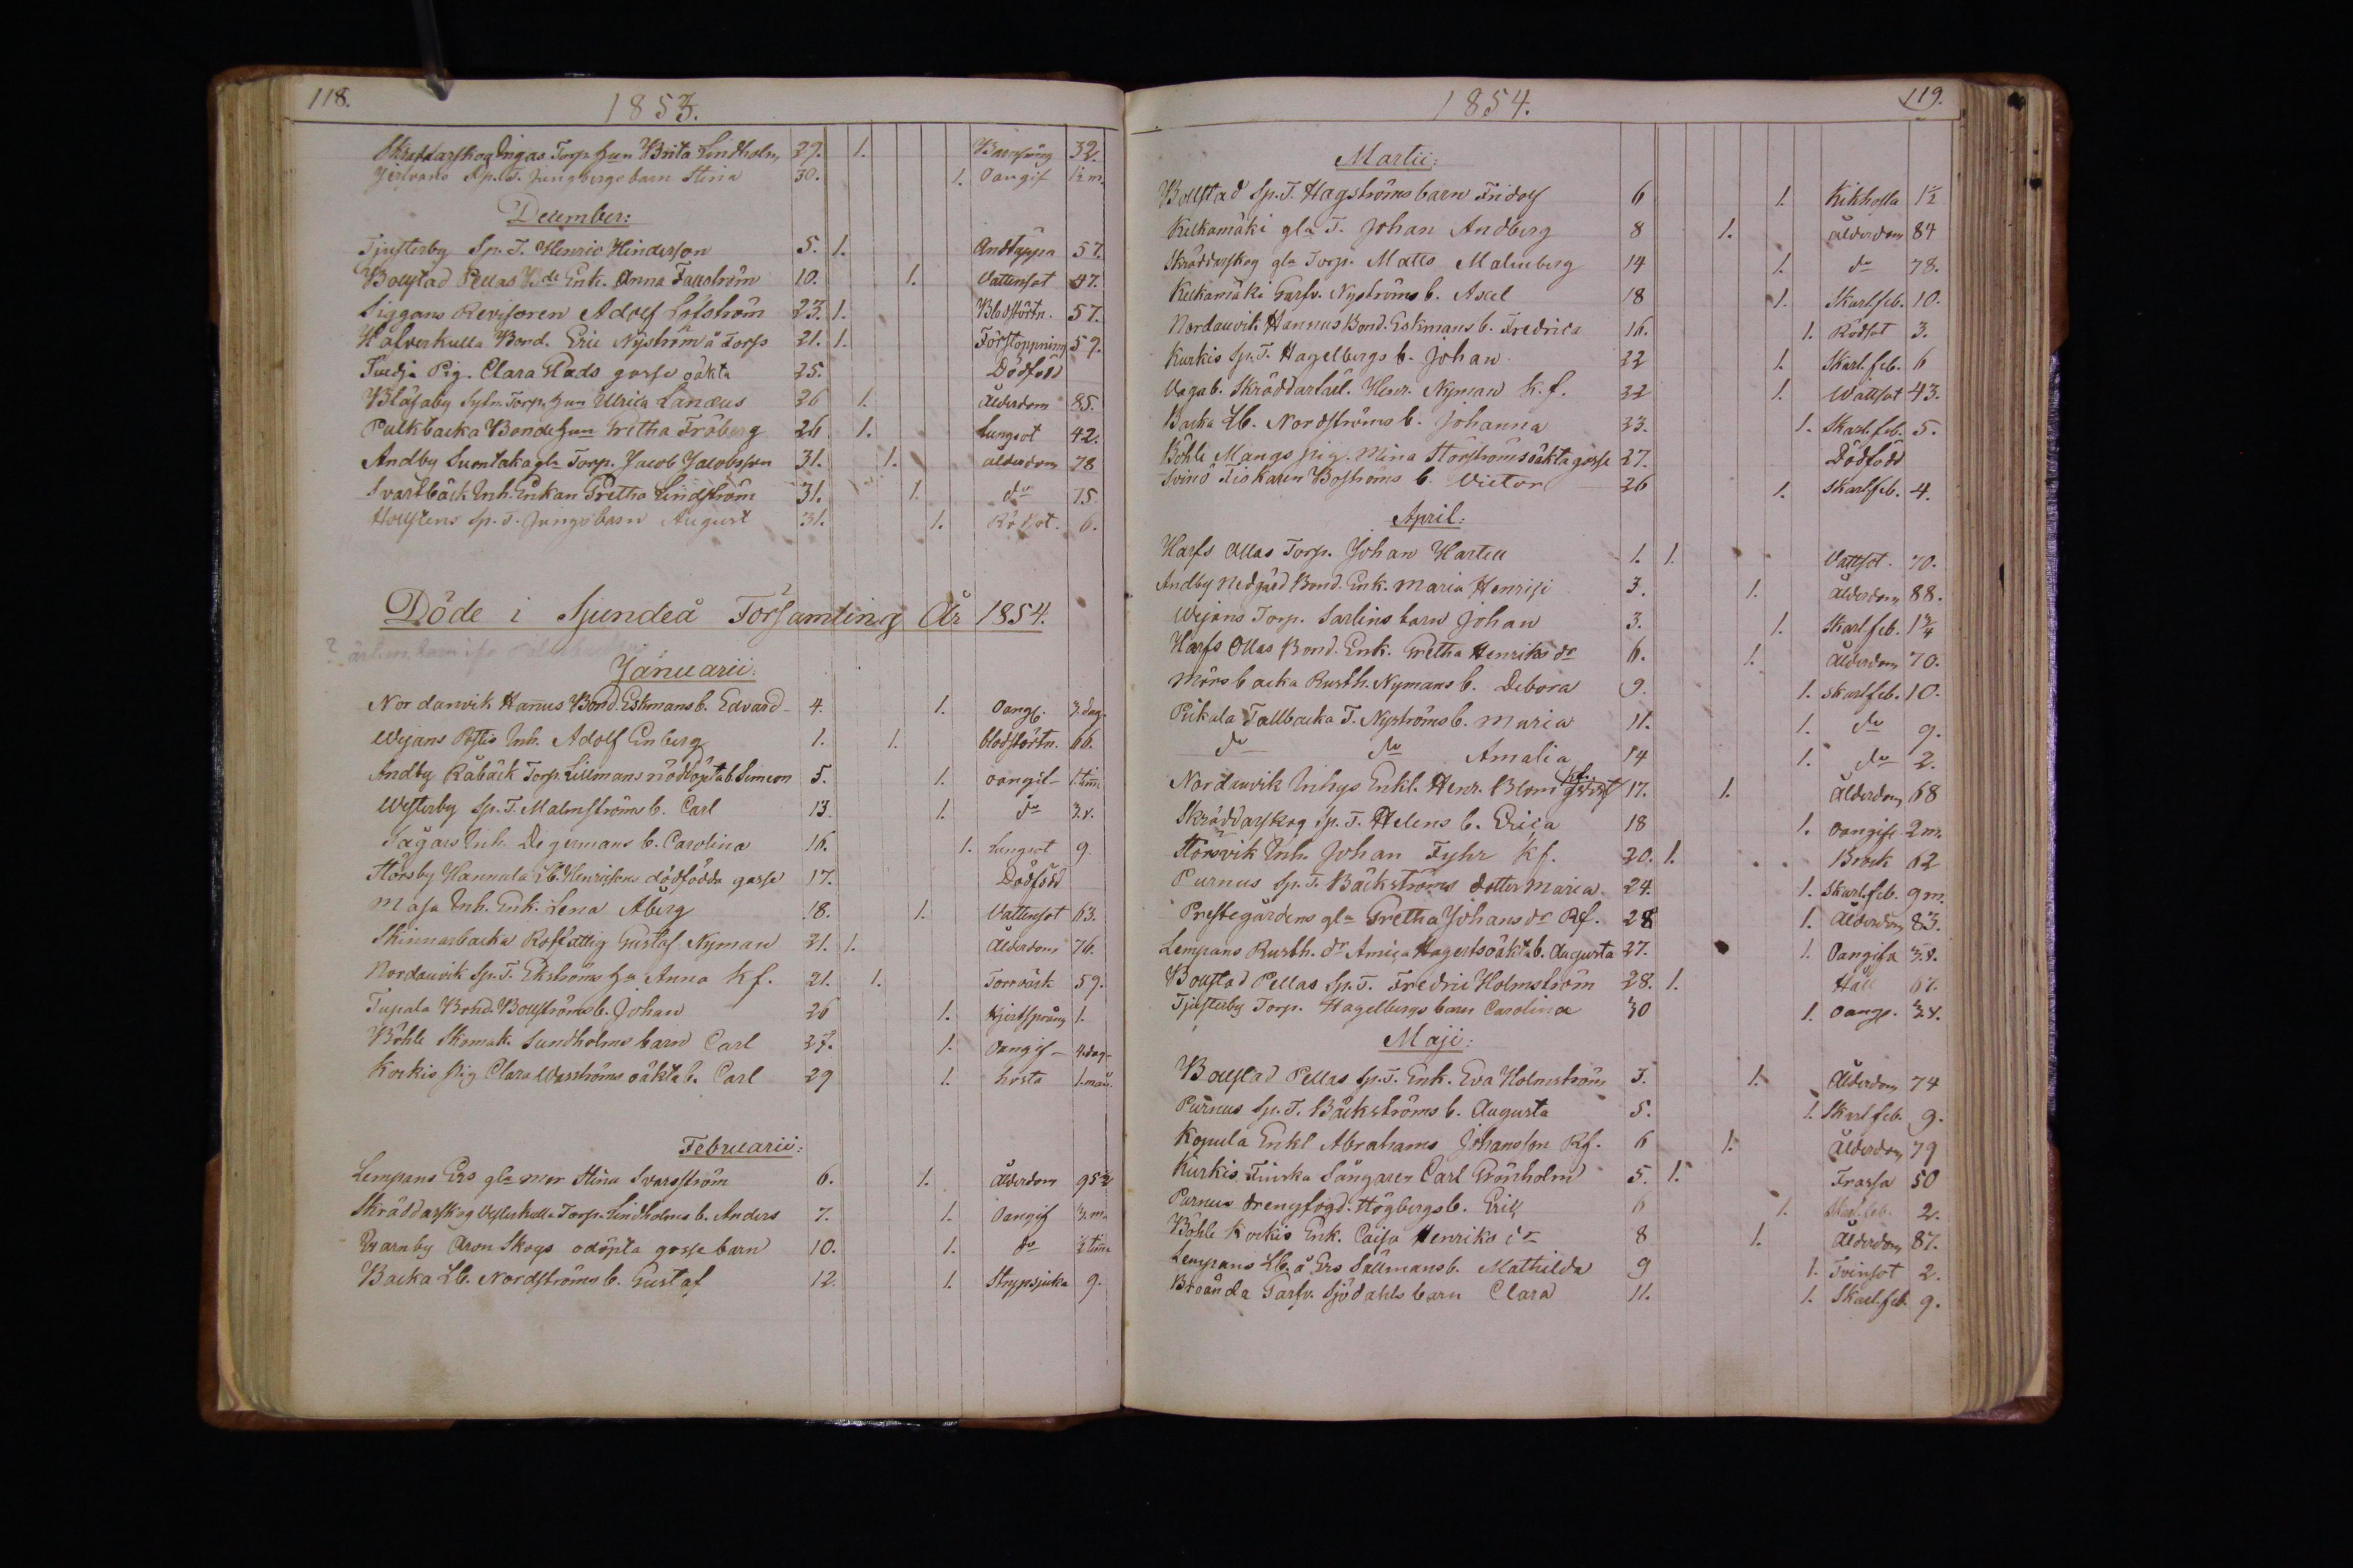 118.
1853.
Skräddarskog Ingas Torp. hun Brita Lindholm 29. 1. Barnsäng 32.
Sp. T. Ljungbergs barn Stina 30. 1. Oangif 1½ m.
December:
Tjusterby Sp. T. Henric Hinderson 5. 1. Andtäppa 57.
Bollstad Pellas Bde Enk. Anna Fallström 10. 1. Vattensot 47.
Siggans Revisoren Adolf Löfström 23. 1. Blodstörtn. 57.
Kalvkulla Bond. Eric Nyström å Torp 21. 1. Förstoppning 59.
Svedja Pig. Clara Glads gosse oäkta 25. Dödfödd
Blåsaby Sytn. Torp. hun Ulrica Lanæus 26 1. Ålderdom 85.
Palkbacka Bonde hun Gretha Fröberg 26. 1. Lungsot 42.
Andby Suontaka gla Torp. Jacob Jacobsson 31. 1. ålderdom 78
Svartbäck Inh. Enkan Gretha Lindström 31. 1. do 75.
Hollstens Sp. T. Jungs barn August 31. 1. Rödsot. 6.
Döde i Sjundeå Församling År 1854.
Januarii:
Nordanvik Hannus Bond. Eskmans b. Edvard 4. 1. Oangf. 3. dag.
Wejans Inh. Adolf Enberg 1. 1. blodstörtn. 66.
Andby Råbäck Torp. Lillmans nöddöpta b. Simeon 5. 1. oangif 1. tim.
Westerby Sp. T. Malmströms b. Carl 13 1. do 3. v.
Sågars Inh. Degermans b. Carolina 16. 1. Lungsot 9
Störsby Hannula Lb. Henricsons dödfödda gosse 17. Dödfödd
Masa Inh. Enk. Lena Åberg 18. 1. Vattensot 63.
Skinnarbacka Gustaf Nyman 31. 1. Ålderdom 76.
Nordanvik Sp. T. Ekströms hu Anna K f. 21. 1. Torrvärk 59.
Tupala Bond. Bollströms b. Johan 26 1. Hjertsprång 1.
Böhle Skomak. Sundholms barn Carl 27. 1. Oangif 4. dag
Korkis pig Clara Wasströms oäkta b. Carl 29 1. hosta 1. mån.
Februarii:
Lempans Ers gla mor Stina Svarsström 6. 1. Ålderdom 95½
Skräddarskog Westerkulla Torp. Lindholms b. Anders 7. 1. Oangif 3. m.
Qvarnby Aron Skogs odöpta gossebarn 10. 1. do ½ timma
Backa Lb. Nordströms b. Gustaf 12. 1. Strypsjuka 9.
119.
1854.
Martii:
Bollstad Sp. T. Hagströms barn Fridolf 6 1. Kikhosta 1½
Kelkamäki gla T. Johan Andberg 8 1. ålderdom 84
Skräddarskog gla Torp. Matts Malmberg 14 1. do 78.
Kelkamäki Garfv. Nyströms b. Axel 18 1. Skarl. feb. 10.
Nordanvik Hannus Bond. Eskmans b. Fredrica 16. 1. Rödsot 3.
Kurkis Sp. T. Hagelbergs b. Johan 22 1. Skarl. feb. 6
Vagab. Skräddarlärl. Henr. Nyman K. f. 22 1. Wattsot 43.
Backa Lb. Nordströms b. Johanna 23. 1. Skarl. feb. 5.
Böhle Mangs pig. Mina Störströms oäkta gosse 27. Dödfödd
Svinö Fiskaren Boströms b. Victor 26 1. skarlfeb. 4.
April:
Harfs Ollas Torp. Johan Hartell 1. 1. Vattsot. 70.
Andby Nedgård Bond. Enk. Maria Henrisi 3. 1. Ålderdom 88.
Wejans Torp. Sarlins barn Johan 3. 1. Skarl. feb. 1¾
Harfs Ollas Bond. Enk. Gretha Henriks dr 6. 1. ålderdom 70.
Mörsbacka Rusth. Nymans b. Debora 9. 1. skarlfeb. 10.
Pikala Tallbacka T. Nyströms b. Maria 11. 1. do 9.
do do Amalia 14 1. do 2.
Nordanvik Inhys Enkl. Henr. Blom kf. 17. 1. Ålderdom 68
Skräddarskog Sp. T. Helens b. Erica 18 1. oangifv. 2 m.
Störsvik Inh. Johan Fyhr Kf. 20. 1. Brock 62
Purnus Sp. T. Bäckströms dotter Maria 24. 1. Skarl. feb. 9 m.
Prestegårdens gla Gretha Johans dr Rf. 28 1. Ålderdom 83.
Lempans Rusth. dr Amica Hagerts oäkta b. Augusta 27. 1. Oangifn 3. v.
Bollstad Pellas Sp. T. Fredric Holmström 28. 1. Håll 67.
Tjusterby Torp. Hagelbergs barn Carolina 30 1. oangf. 3. v.
Maji:
Bollstad Pellas Sp. T. Enk. Eva Holmström 3. 1. Ålderdom 74
Purnus Sp. T. Bäckströms b. Augusta 5. 1. Skarl feb. 9.
Kopula Enkl Abrahams Johansson Rf. 6 1. Ålderdom 79
Kurkis Finska Sångaren Carl Grönholm 5. 1. Frossa 50
Purnus drengfogd. Högbergs b. Erik 6 1. Skarl. feb. 2.
Böhle Korkis Enk. Caisa Henriks dr 8 1. Ålderdom 87.
Lempans Lb. å Ers Sällmans b. Mathilda 9 1. Tvinsot 2.
Broända Garfv. Sjödahls barn Clara 11. 1. Skarl. feb. 9.